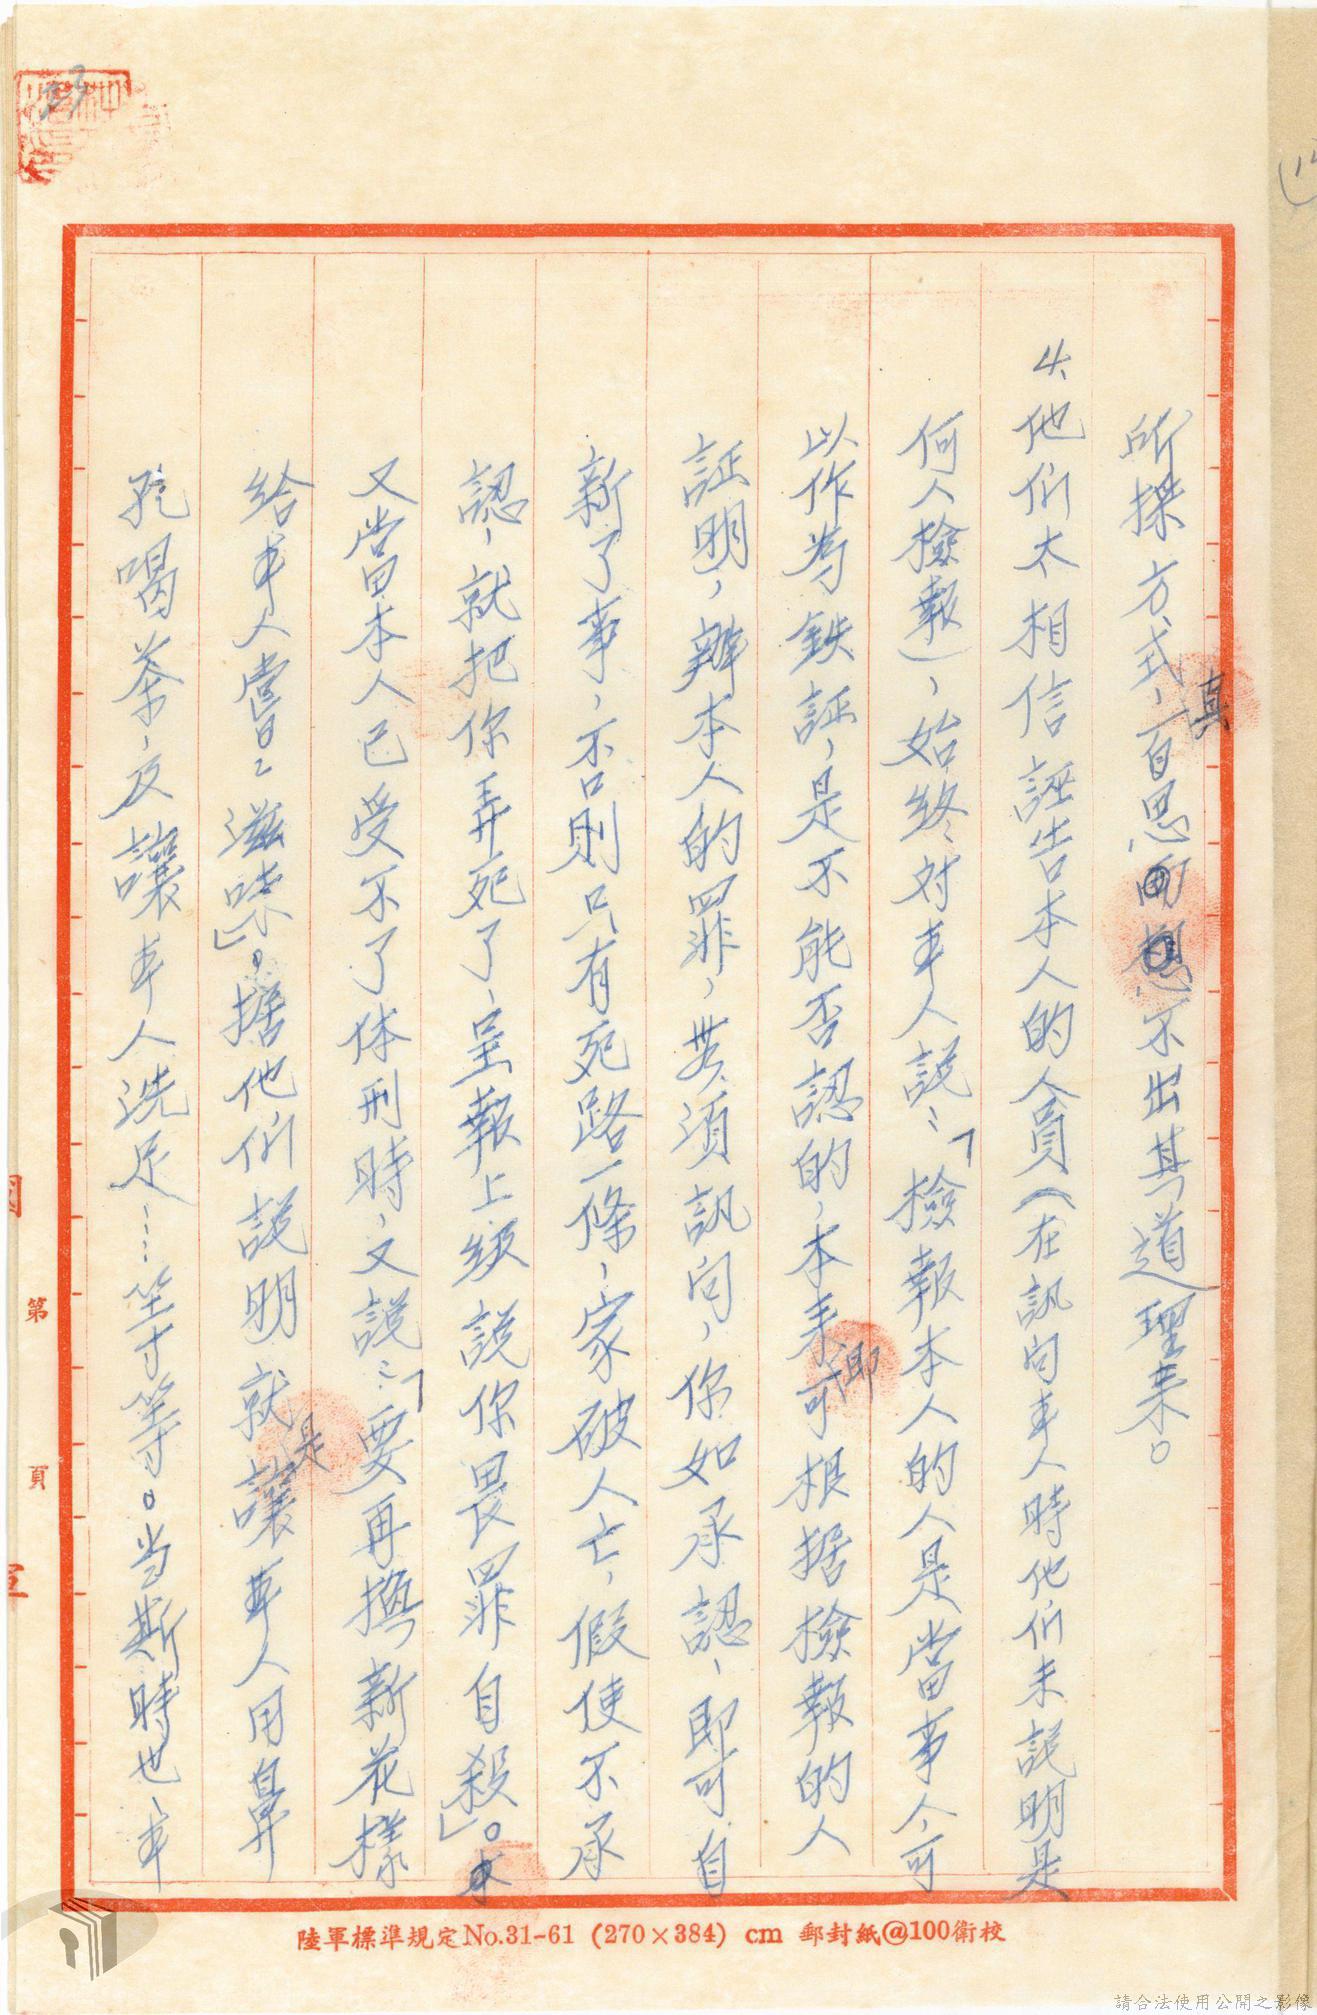 所採方式，真百思不出其道理來。
4、他们太相信誣告本人的人員（在訊问本人時他们未說明是
何人檢報），始終対本人說：「檢報本人的人是當事人，可
以作為鉄証，是不能否認的，本来即可根据檢報的人
証明，辦本人的罪，無須訊问，你如承認，即可自
新了事，不否則只有死路一條，家破人亡，假使不承
認，就把你弄死了，呈報上級說你畏罪自殺」。
又當本人已受不了体刑時，又說：「要再換新花樣
給本人嘗嘗滋味」。据他们說明就是讓本人用鼻
孔喝茶，及讓本人洗足……等于等。当斯時也，本
第 頁
陸軍標準規定No.31-61 (270×384) cm 郵封紙@100衛校
請合法使用公開之影像